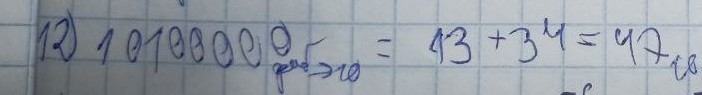 12) 10100000 →10 = 13 + 34 = 47₁₀